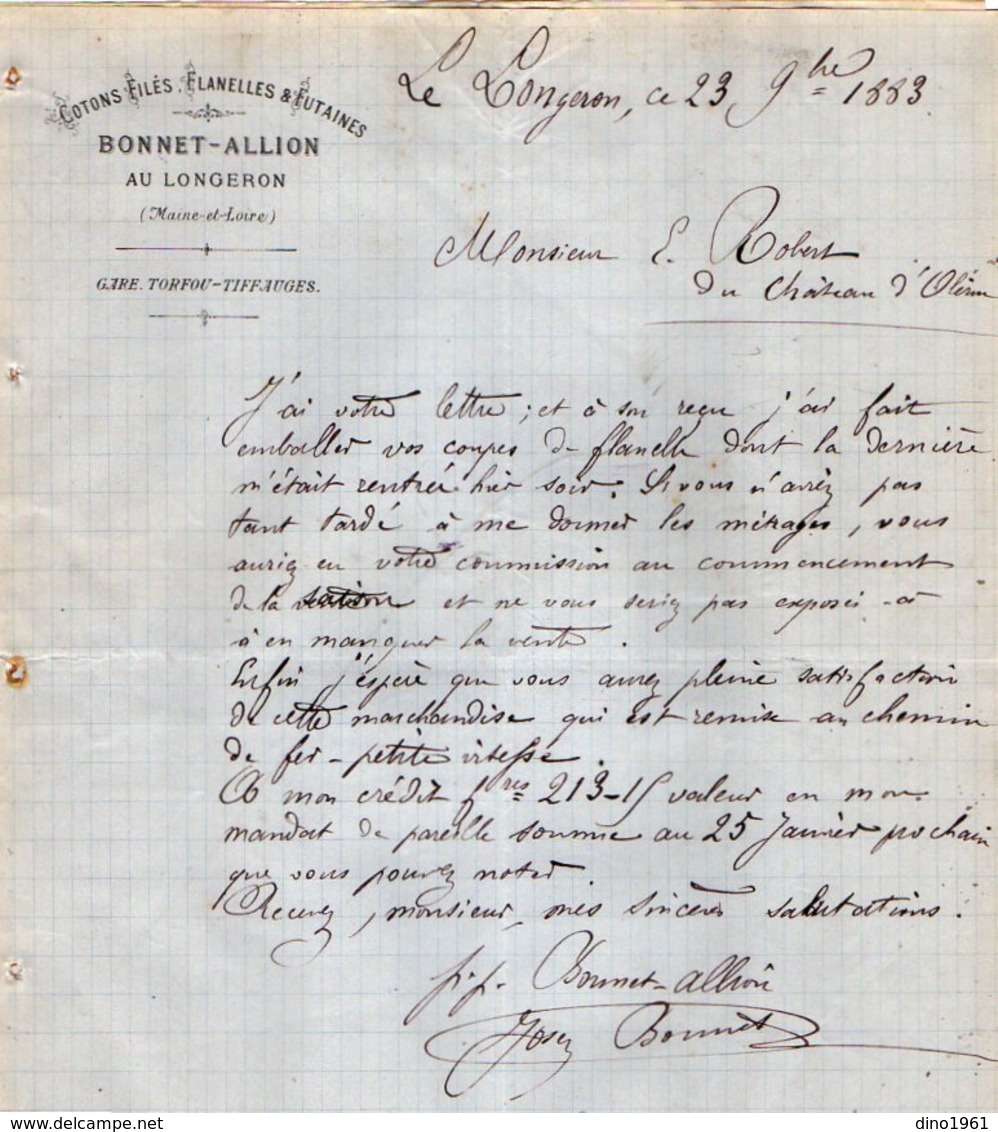 COTONS FILÉS. FLANELLES & FUTAINES
BONNET-ALLION
AU LONGERON
(Maine-et-Loire)
GARE. TORFOU-TIFFAUGES.
Le Longeron, ce 23 9bre 1883
Monsieur E. Robert
du Château d'Oléron
J'ai votre lettre ; et à son reçu j'ai fait
emballer vos coupes de flanelle dont la dernière
m'était rentrée hier soir. Si vous n'aviez pas
tant tardé à me donner les métrages, vous
auriez eu votre commission au commencement
de la saison et ne vous seriez pas exposé -à
à en manquer la vente.
Enfin j'espère que vous aurez pleine satisfaction
de cette marchandise qui est remise au chemin
de fer - petite vitesse.
A mon crédit frcs 213-15 valeur en mon
mandat de pareille somme au 25 Janvier prochain
que vous pouvez noter.
Recevez, monsieur, mes sincères salutations.
p.p. Bonnet-allion
Bonnet
delcampe.net
dino1961